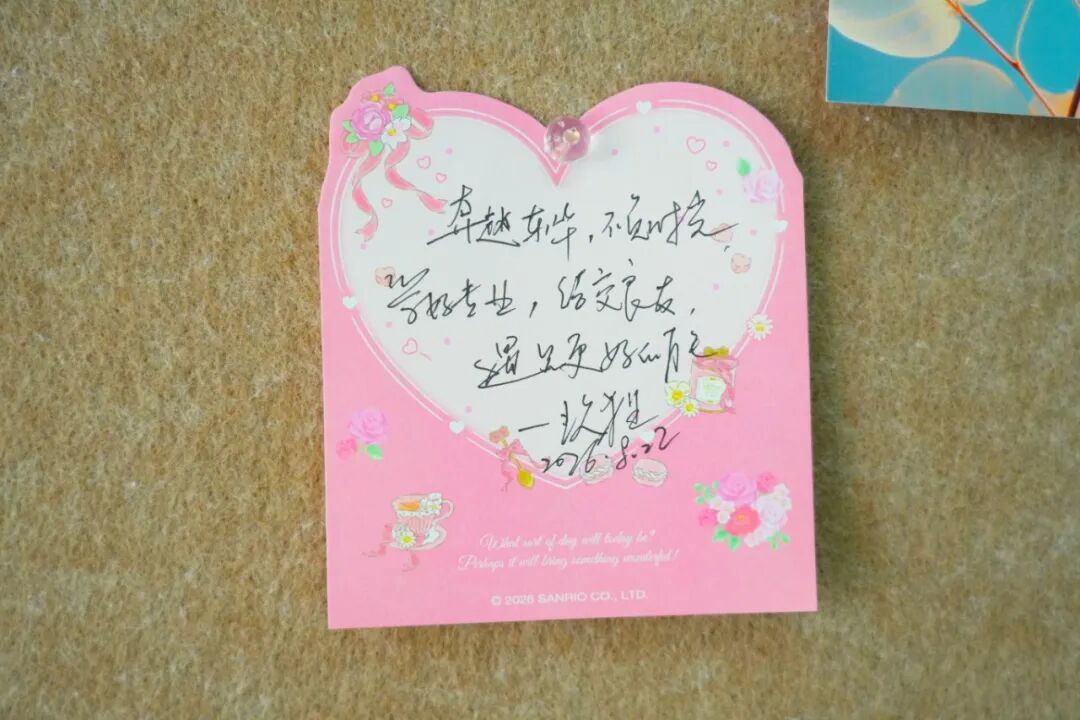 奔越东华，不负时光，
学好专业，结交良友，
遇见更好的自己
2026.8.22
What sort of day will today be?
Perhaps it will bring something wonderful!
© 2026 SANRIO CO., LTD.